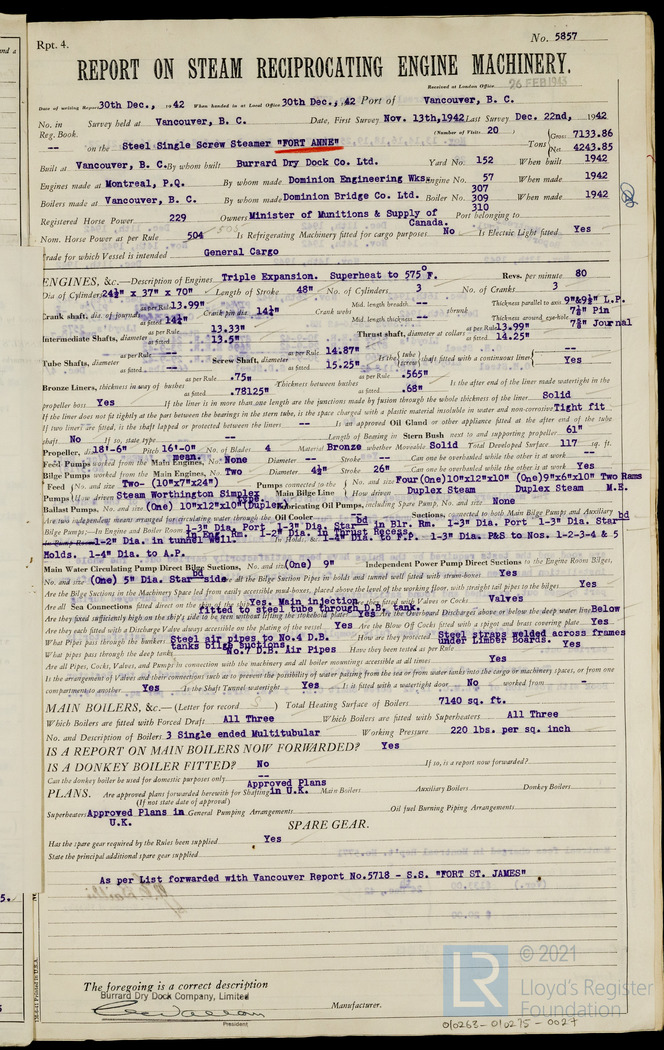 Rpt. 4.
No. 5857
REPORT ON STEAM RECIPROCATING ENGINE MACHINERY.
Received at London Office 26 FEB 1943
Date of writing Report 30th Dec., 1942 When handed in at Local Office 30th Dec., 42 Port of Vancouver, B. C.
No. in Survey held at Vancouver, B. C. Date, First Survey Nov. 13th, 1942 Last Survey Dec. 22nd, 1942
Reg. Book. (Number of Visits 20
-- on the Steel Single Screw Steamer "FORT ANNE" Tons Gross 7133.86 Net 4243.85
Built at Vancouver, B. C. By whom built Burrard Dry Dock Co. Ltd. Yard No. 152 When built 1942
Engines made at Montreal, P.Q. By whom made Dominion Engineering Wks. Engine No. 57 When made 1942
Boilers made at Vancouver, B. C. By whom made Dominion Bridge Co. Ltd. Boiler No. 307 309 310 When made 1942
Registered Horse Power 229 Owners Minister of Munitions & Supply of Canada. Port belonging to
Nom. Horse Power as per Rule 504 Is Refrigerating Machinery fitted for cargo purposes No Is Electric Light fitted Yes
Trade for which Vessel is intended General Cargo
ENGINES, &c.—Description of Engines Triple Expansion. Superheat to 575°F. Revs. per minute 80
Dia of Cylinders 24½" x 37" x 70" Length of Stroke 48" No. of Cylinders 3 No. of Cranks 3
Crank shaft, dia. of journals as per Rule 13.99" as fitted 14¼" Crank pin dia. 14¼" Crank webs Mid. length breadth -- Mid. length thickness -- shrunk Thickness parallel to axis 9"&9½" L.P. Thickness around eye-hole 7⅛" Pin 7⅞" Journal
Intermediate Shafts, diameter as per Rule 13.33" as fitted 13.5" Thrust shaft, diameter at collars as per Rule 13.99" as fitted 14.25"
Tube Shafts, diameter as per Rule -- as fitted -- Screw Shaft, diameter as per Rule 14.87" as fitted 15.25" Is the tube screw shaft fitted with a continuous liner -- Yes
Bronze Liners, thickness in way of bushes as per Rule .75" as fitted .78125" Thickness between bushes as per Rule .565" as fitted .68" Is the after end of the liner made watertight in the
propeller boss Yes If the liner is in more than one length are the junctions made by fusion through the whole thickness of the liner Solid
If the liner does not fit tightly at the part between the bearings in the stern tube, is the space charged with a plastic material insoluble in water and non-corrosive Tight fit
If two liners are fitted, is the shaft lapped or protected between the liners -- Is an approved Oil Gland or other appliance fitted at the after end of the tube
shaft No If so, state type -- Length of Bearing in Stern Bush next to and supporting propeller 61"
Propeller, dia. 18'-6" Pitch 16'-0" mean. No. of Blades 4 Material Bronze whether Moveable Solid Total Developed Surface 117 sq. ft.
Feed Pumps worked from the Main Engines, No. None Diameter -- Stroke -- Can one be overhauled while the other is at work --
Bilge Pumps worked from the Main Engines, No. Two Diameter 4½" Stroke 26" Can one be overhauled while the other is at work Yes
Feed Pumps No. and size Two- (10"x7"x24") If driven Steam Worthington Simplex type. Pumps connected to the Main Bilge Line No. and size Four(One)10"x12"x10" (One)9"x6"x10" Two Rams How driven Duplex Steam Duplex Steam M.E.
Ballast Pumps, No. and size (One) 10"x12"x10"(Duplex) Lubricating Oil Pumps, including Spare Pump, No. and size None
Are two independent means arranged for circulating water through the Oil Cooler -- Suctions, connected to both Main Bilge Pumps and Auxiliary
Bilge Pumps:—In Engine and Boiler Room 1-3" Dia. Port 1-3" Dia. Starbd in Blr. Rm. 1-3" Dia. Port 1-3" Dia. Starbd
in Eng. Rm. 1-2" Dia. in Thrust Recess.
1-2" Dia. in tunnel well. In Holds, &c. 1-4" Dia. to F.P. 1-3" Dia. P&S to Nos. 1-2-3-4 & 5
Holds. 1-4" Dia. to A.P.
Main Water Circulating Pump Direct Bilge Suctions, No. and size (One) 9" Independent Power Pump Direct Suctions to the Engine Room Bilges,
No. and size (One) 5" Dia. Starbd side Are all the Bilge Suction Pipes in holds and tunnel well fitted with strum-boxes Yes
Are the Bilge Suctions in the Machinery Space led from easily accessible mud-boxes, placed above the level of the working floor, with straight tail pipes to the bilges Yes
Are all Sea Connections fitted direct on the skin of the ship Yes. Main injection fitted to steel tube through D.B. tank. Are they fitted with Valves or Cocks Valves
Are they fixed sufficiently high on the ship's side to be seen without lifting the stokehold plates Yes Are the Overboard Discharges above or below the deep water line Below
Are they each fitted with a Discharge Valve always accessible on the plating of the vessel Yes Are the Blow Off Cocks fitted with a spigot and brass covering plate Yes
What Pipes pass through the bunkers Steel air pipes to No.4 D.B. tanks bilge suctions. How are they protected Steel straps welded across frames under Limber Boards.
What pipes pass through the deep tanks No.7 D.B. Air Pipes Have they been tested as per Rule Yes
Are all Pipes, Cocks, Valves, and Pumps in connection with the machinery and all boiler mountings accessible at all times Yes
Is the arrangement of Valves and their connections such as to prevent the possibility of water passing from the sea or from water tanks into the cargo or machinery spaces, or from one
compartment to another Yes Is the Shaft Tunnel watertight Yes Is it fitted with a watertight door No worked from -
MAIN BOILERS, &c.—(Letter for record ) Total Heating Surface of Boilers 7140 sq. ft.
Which Boilers are fitted with Forced Draft All Three Which Boilers are fitted with Superheaters All Three
No. and Description of Boilers 3 Single ended Multitubular Working Pressure 220 lbs. per sq. inch
IS A REPORT ON MAIN BOILERS NOW FORWARDED? Yes
IS A DONKEY BOILER FITTED? No If so, is a report now forwarded?
Can the donkey boiler be used for domestic purposes only --
PLANS. Are approved plans forwarded herewith for Shafting Approved Plans in U.K. Main Boilers Auxiliary Boilers Donkey Boilers
(If not state date of approval)
Superheaters Approved Plans in U.K. General Pumping Arrangements Oil fuel Burning Piping Arrangements
SPARE GEAR.
Has the spare gear required by the Rules been supplied Yes
State the principal additional spare gear supplied
As per List forwarded with Vancouver Report No.5718 - S.S. "FORT ST. JAMES"
The foregoing is a correct description
Burrard Dry Dock Company, Limited
Manufacturer.
President
© 2021
LR
Lloyd's Register
Foundation
010268-010275-0027